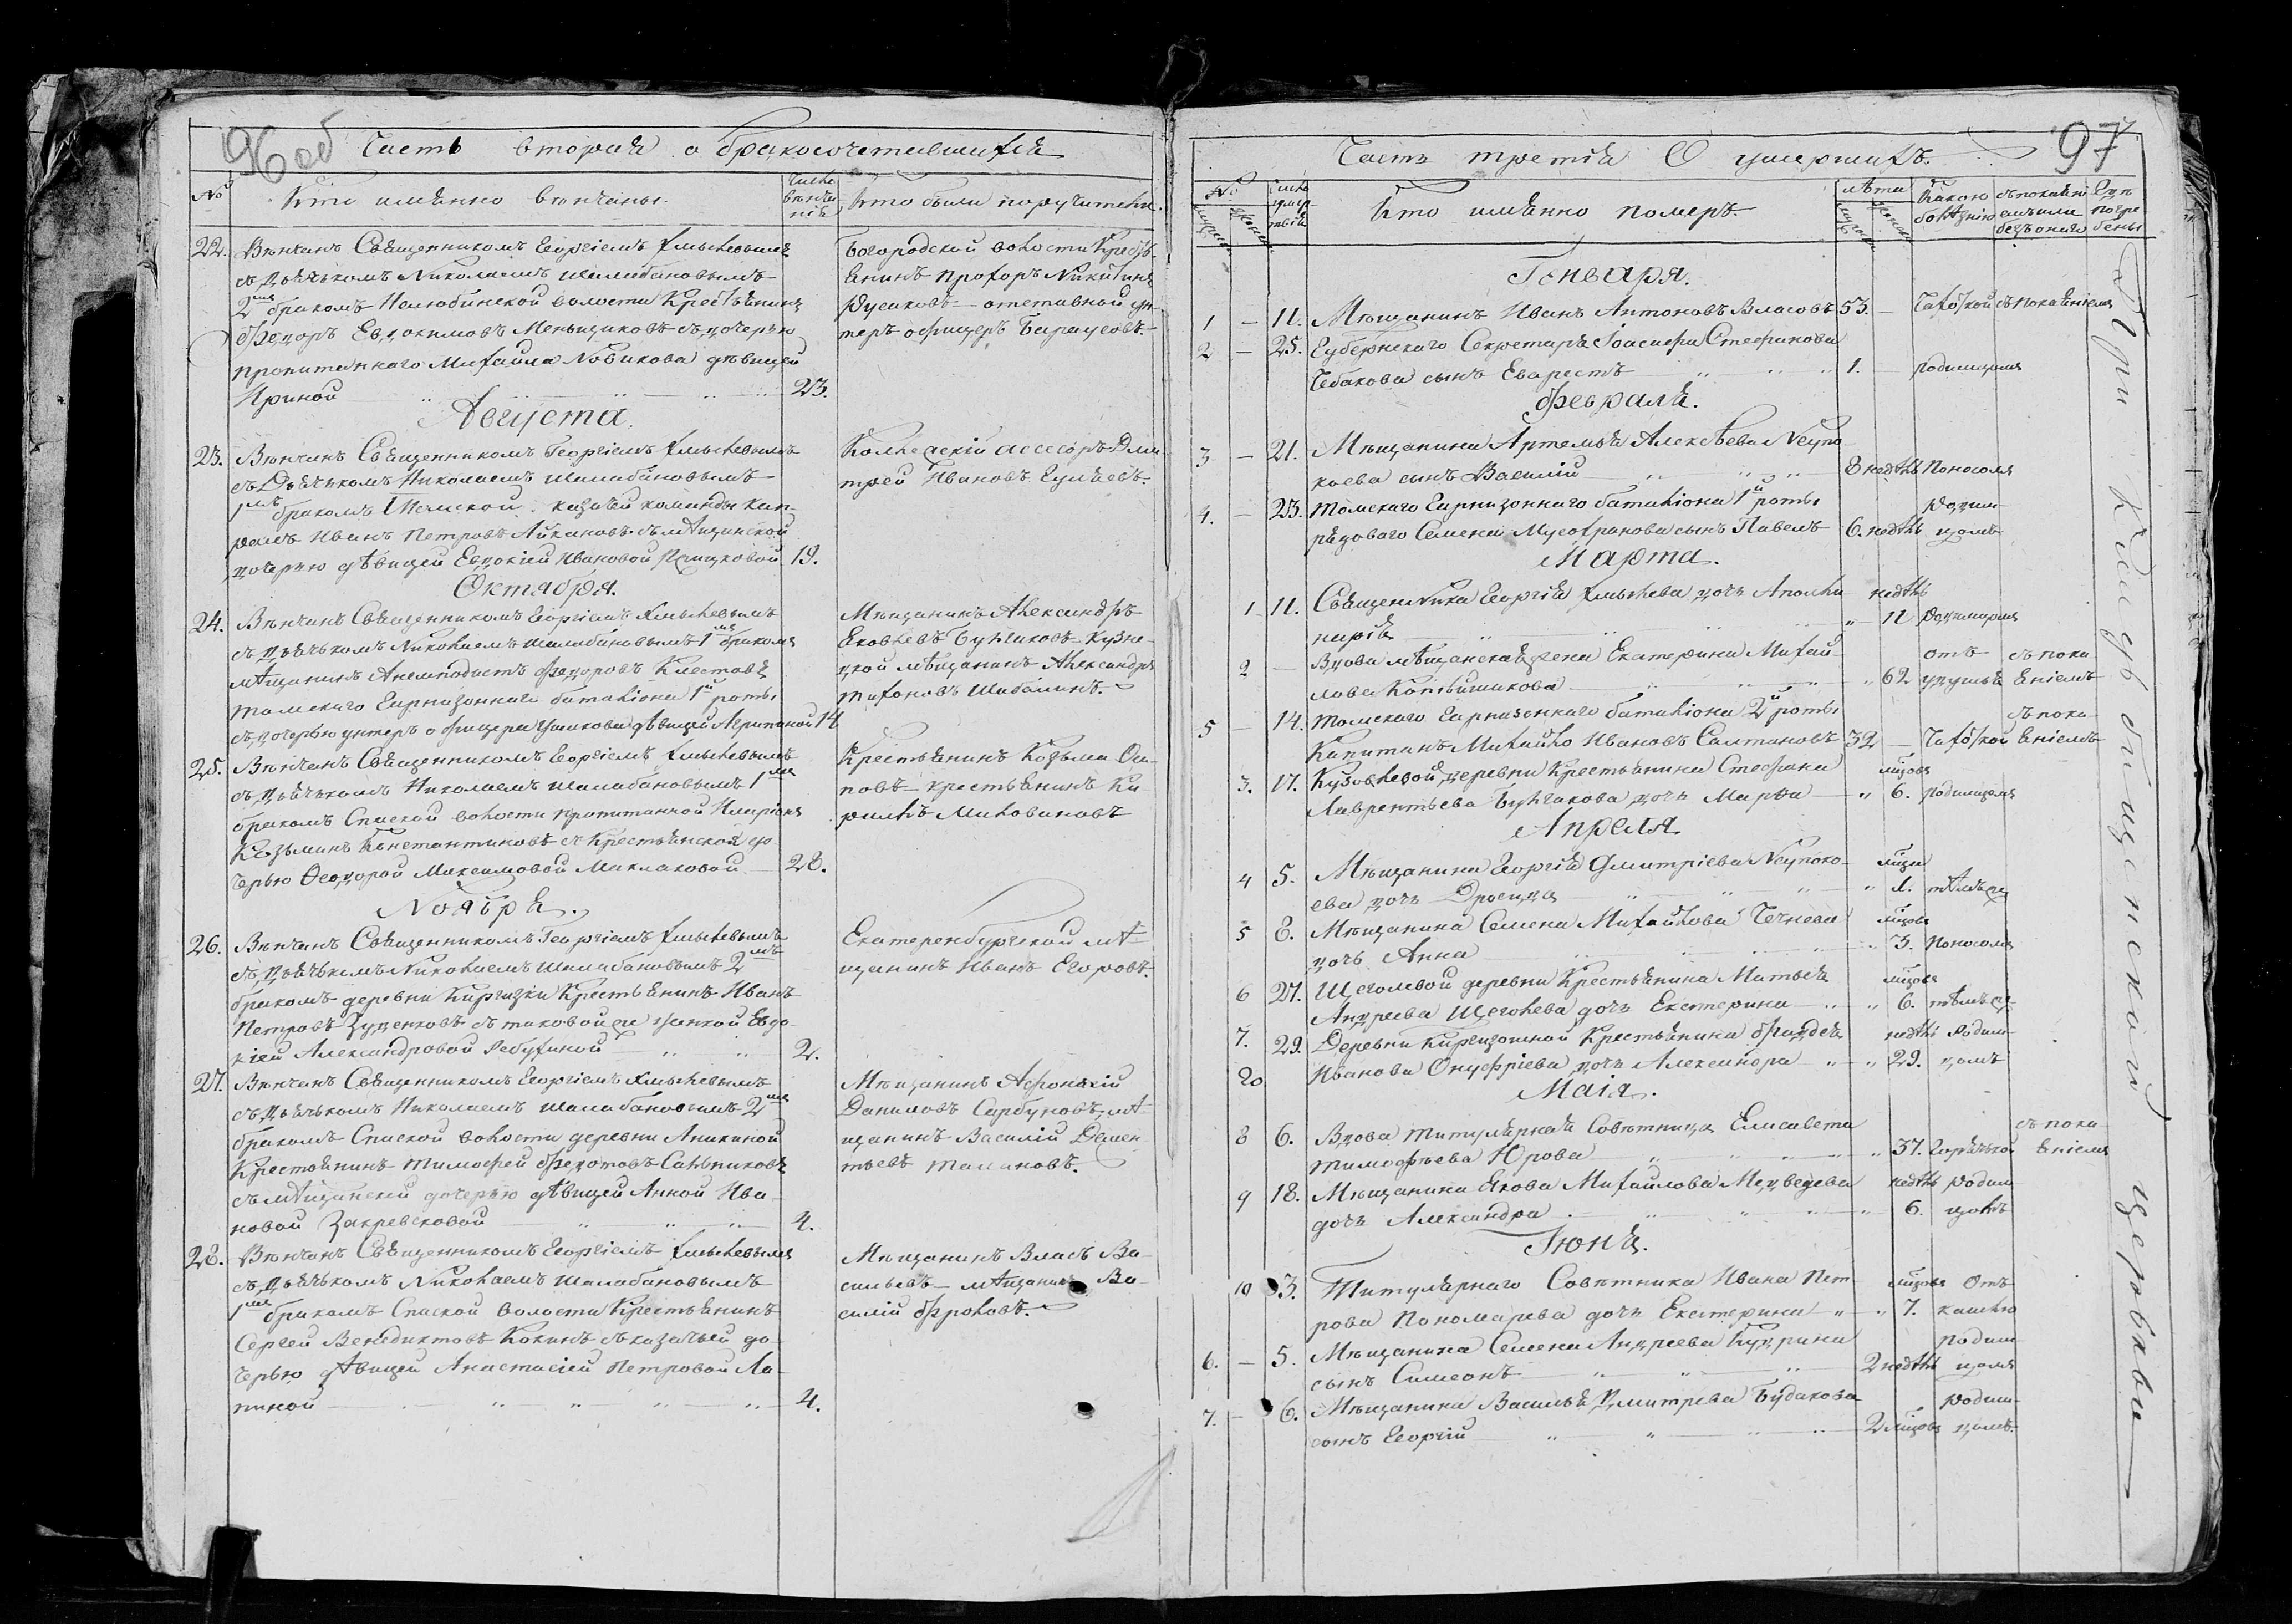 96 об
Часть вторая о бракосочетавшихся
№ Кто имянно венчаны. Число венчания Кто были поручители.
22. Венчанъ Священникомъ Георгіемъ Хмылевымъ
съ Дьячькомъ Николаемъ Шалабановымъ
2мъ бракомъ Нелюбинской волости Крестьянинъ
Федоръ Евдокимовъ Меньщиковъ съ дочерью
пропитаннаго Михаила Новикова девицей
Ириной 23.
Богородской волости Кресть-
янинъ Прохоръ Никитинъ
Русаковъ отставной ун-
теръ офицеръ
Августа.
23. Венчанъ Священникомъ Георгіемъ Хмылевымъ
съ Дьячькомъ Николаемъ Шалабановымъ
1мъ бракомъ Томской казачьей команды кап-
ралъ Иванъ Петровъ Айкановъ съ мещанской
дочерью девицей Евдокіей Ивановой 19.
Коллежскій ассесоръ Дми-
трей Ивановъ
Октября.
24. Венчанъ Священникомъ Георгіемъ Хмылевымъ
съ Дьячькомъ Николаемъ Шалабановымъ 1мъ бракомъ
мещанинъ Анемподистъ Федоровъ
Томскаго Гарнизоннаго баталіона 1й роты
съ дочерью унтеръ офицера Ушакова девицей 14
Мещанинъ Александръ
Яковлевъ Бунчаковъ Кузне-
цкой мещанинъ Александръ
Тихоновъ Шабалинъ.
25. Венчанъ Священникомъ Георгіемъ Хмылевымъ
съ Дьячькомъ Николаемъ Шалабановымъ 1мъ
бракомъ Спаской волости пропитанной
Козьминъ Константиновъ съ Крестьянской до-
черью Феодорой Максимовой Маклаковой 28.
Крестьянинъ Козьма Оси-
повъ крестьянинъ Ки-
рилъ Миловановъ
Ноября.
26. Венчанъ Священникомъ Георгіемъ Хмылевымъ
съ Дьячькомъ Николаемъ Шалабановымъ 2мъ
бракомъ деревни Киргизки Крестьянинъ Иванъ
Петровъ Зуденковъ съ таковойже женкой Евдо-
кіей Александровой 2.
Екатеренбургской ме-
щанинъ Иванъ Егоровъ.
27. Венчанъ Священникомъ Георгіемъ Хмылевымъ
съ Дьячькомъ Николаемъ Шалабановымъ 2мъ
бракомъ Спаской волости деревни Аникиной
Крестьянинъ Тимофей Федотовъ Сальниковъ
съ мещанской дочерью девицей Анной Ива-
новой Закревсковой 4.
Мещанинъ Афонасій
Даниловъ Сарбуновъ, ме-
щанинъ Василій Демен-
тьевъ
28. Венчанъ Священникомъ Георгіемъ Хмылевымъ
съ Дьячькомъ Николаемъ Шалабановымъ
1мъ бракомъ Спаской волости Крестьянинъ
Сергей Венедиктовъ Кокинъ съ казачьей до-
черью девицей Анастасіей Петровой Ла-
пиной 4.
Мещанинъ Власъ Ва-
сильевъ мещанинъ Ва-
силій Фроловъ.
97
Часть третія О умершихъ.
№ мужеска женска Число умертвія Кто имянно померъ. лета мужеска женска Какою болезнію съ покаяніемъ или безъ онаго Где погребены
Генваря.
1 — 11. Мещанинъ Иванъ Антоновъ Власовъ 53. — Чахоткой съ покаяніемъ
2 — 25. Губернскаго Секретаря Іоасафа Стефанова
Чебакова сынъ Еварестъ 1. — родимцемъ
Февраля.
3 — 21. Мещанина Артемья Алексеева Неупо-
коева сынъ Василій 8 недель Поносомъ
4. — 23. Томскаго Гарнизоннаго баталіона 1й роты
рядоваго Семена Мусохранова сынъ Павелъ 6. недель родимцомъ
Марта.
1 11. Священника Георгія Хмылева дочь Аполли-
нарія недель 11 родимцемъ
2 — Вдова мещанская жена Екатерина Михай-
лова 62 отъ удушья съ покаяніемъ
5 — 14. Томскаго Гарнизоннаго баталіона 2й роты
Капитанъ Михайло Ивановъ Салтановъ 32 — Чахоткой съ покаяніемъ
3. 17. Кузовлевой деревни Крестьянина Стефана
Лаврентьева Бунчакова дочь Марфа мцовъ 6. родимцемъ
Апреля
4 5. Мещанина Георгія Дмитріева Неупоко-
ева дочь Дросида мца 1. темъже
5 8. Мещанина Семена Михайлова Чечнева
дочь Анна мцовъ 3. Поносомъ
6 27. Щеголевой деревни Крестьянина Матвея
Андреева Щеголева дочь Екатерина мцовъ 6. темъже
7. 29. Деревни Киргизошной Крестьянина Фаддея
Иванова Онуфріева дочь Александра недель 29. родимцомъ
20
Маія.
8 6. Вдова титулярная Советница Елисавета
Тимофеева Юрова 37. Горячькой съ покаяніемъ
9 18. Мещанина Якова Михайлова Медведева
дочь Александра недель 6. родимцомъ
Іюня.
10 3. Титулярнаго Советника Ивана Пет-
рова Пономарева дочь Екатерина мцовъ 7. Отъ кашлю
6. — 5. Мещанина Семена Андреева Кудрина
сынъ Симеонъ 2 недель родимцомъ
7. — 6. Мещанина Василья Дмитрева Будакова
сынъ Георгій 2 мцовъ родимцомъ.
При Кладбищенской церкови